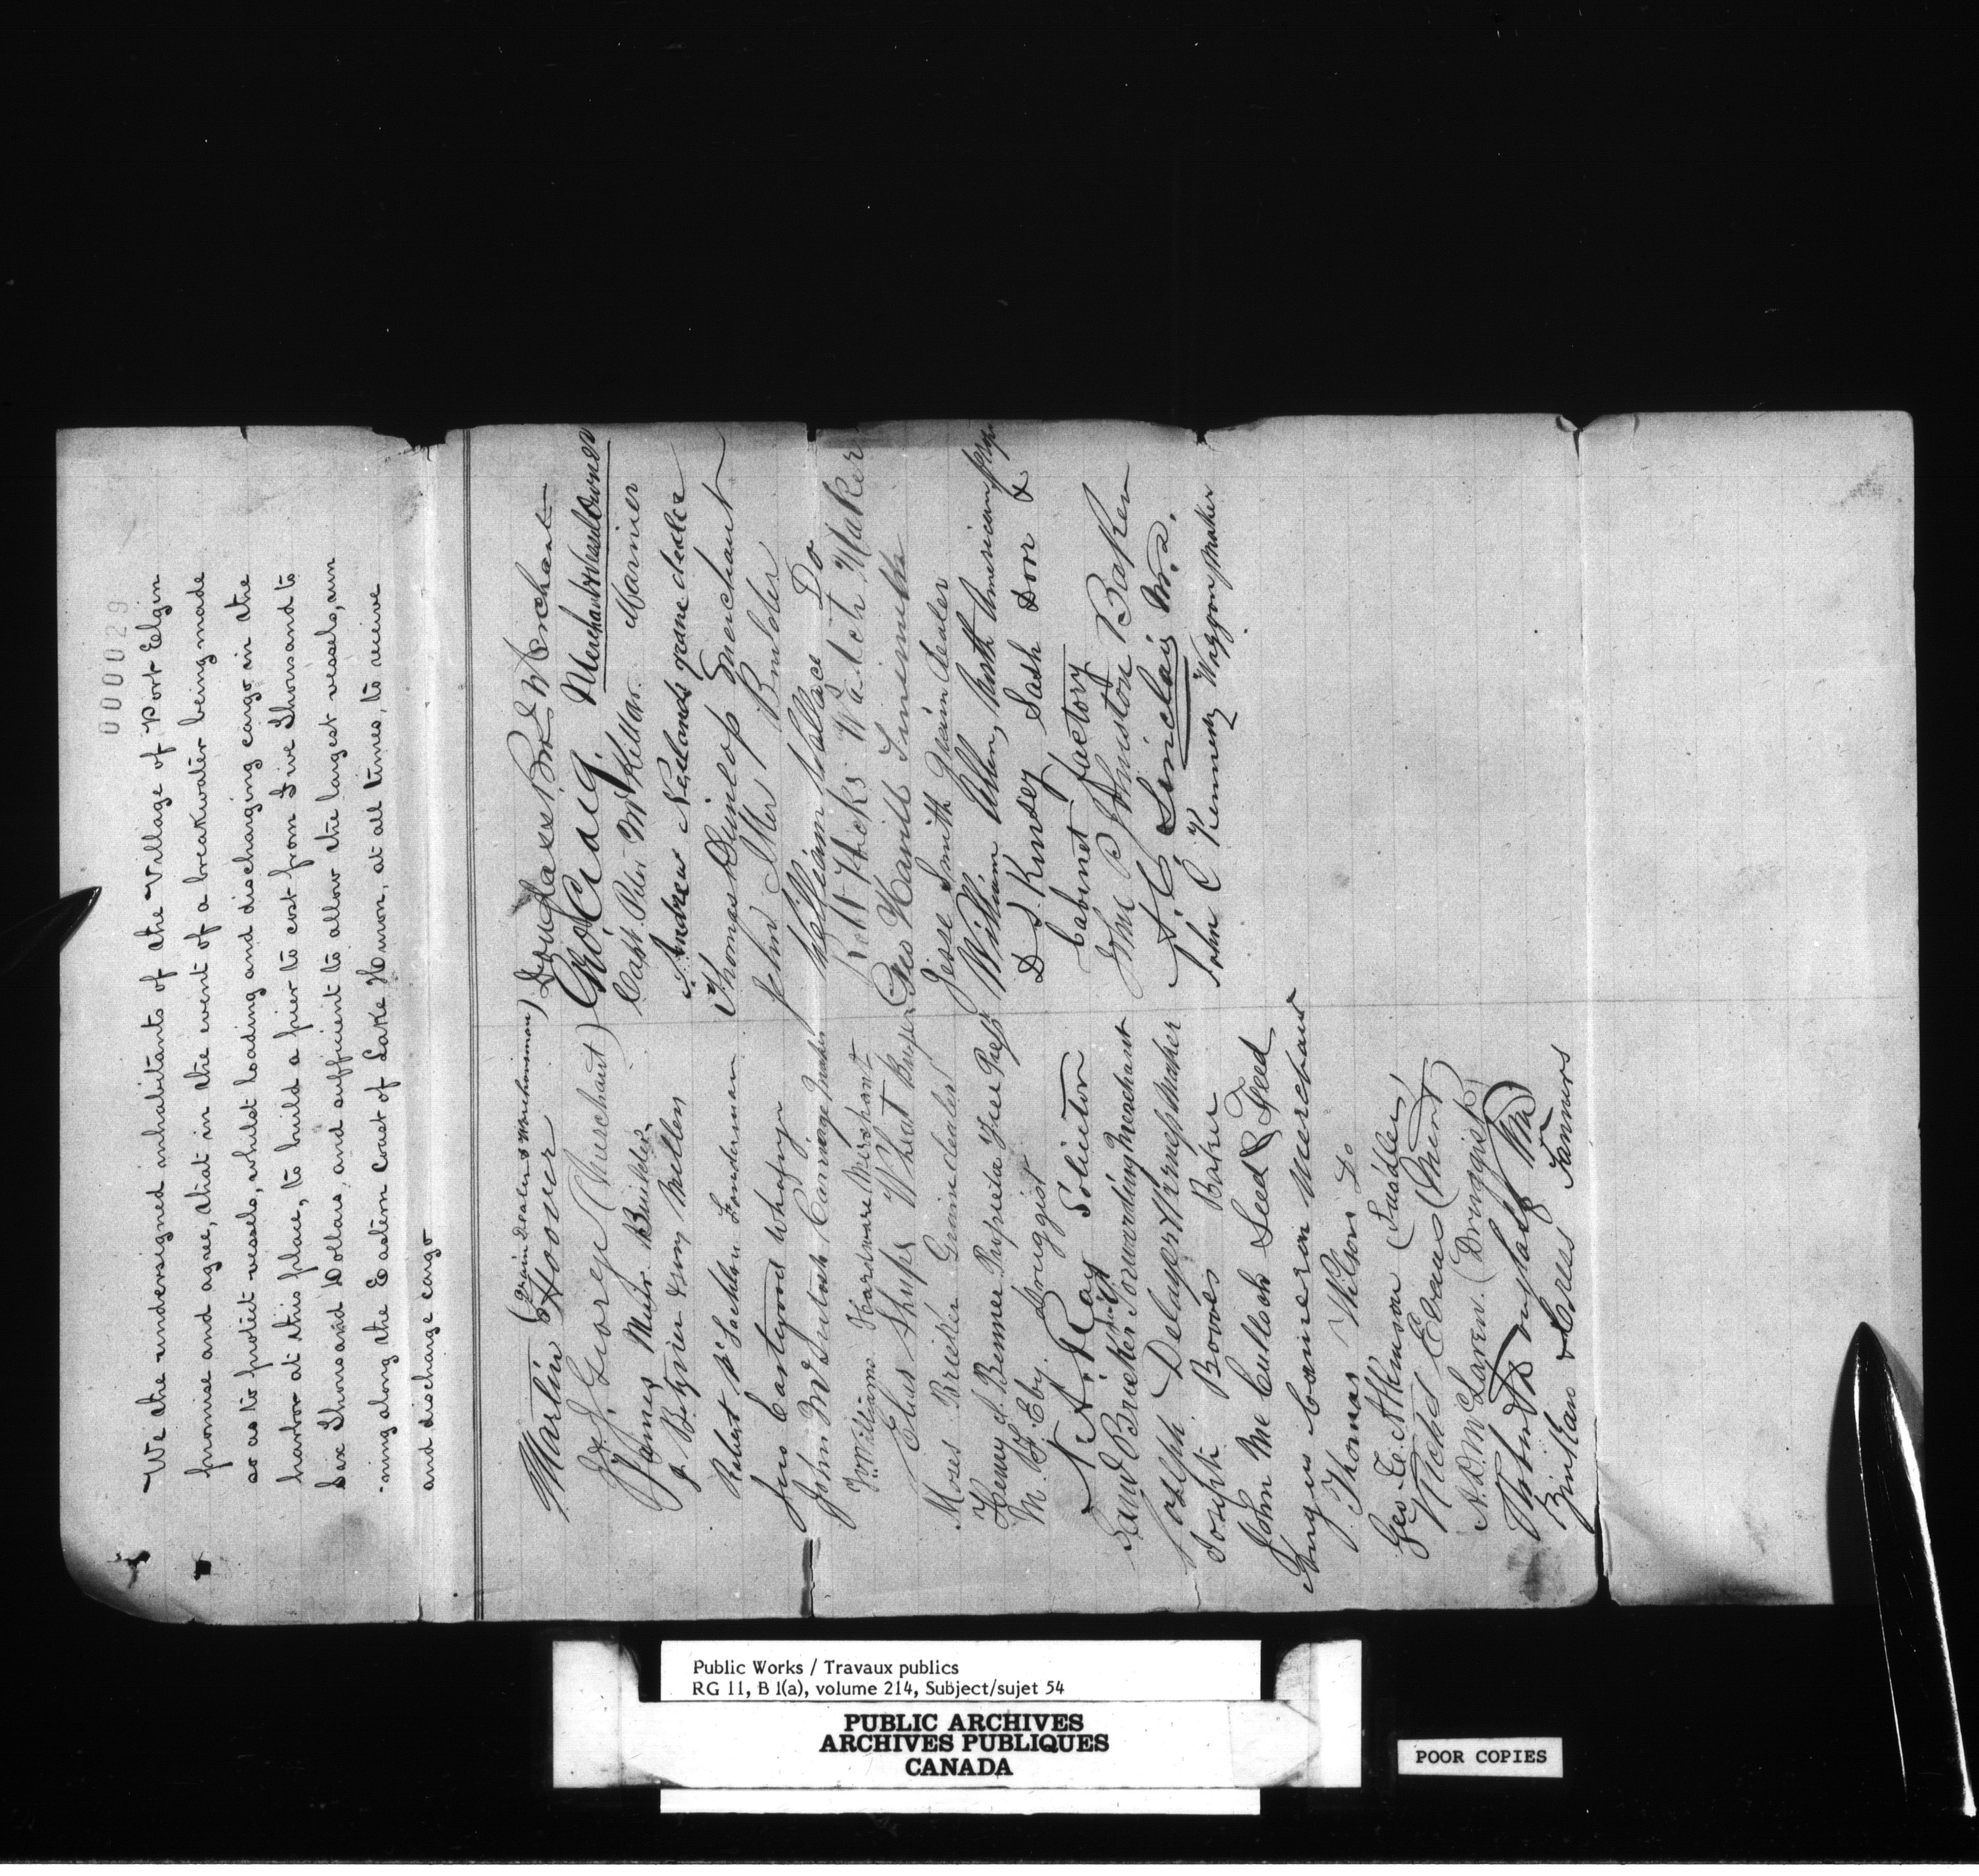 000029
We the undersigned inhabitants of the Village of Port Elgin
promise and agree, that in the event of a breakwater being made
so as to protect vessels, whilst loading and discharging cargo in the
harbor at this place, to build a pier to cost from Five Thousand to
Six Thousand Dollars, and sufficient to allow the largest vessels, run
-ning along the Eastern Coast of Lake Huron, at all times, to receive
and discharge cargo
Martin Hoover (Grain Dealer & Warehouseman)
George (Merchant)
James Muir Builder
Robert McLachlan Founderman
John McIntosh Carriage Maker
Williams Hardware Merchant
Wheat Buyer
Moses Bricker Grain dealer
Henry J. Benner Proprietor Free Press
M. F. Eby. Druggist
Ray Solicitor
Bricker Forwarding Merchant
Joseph Delayer Harness Maker
Joseph Bowes Baker
John McCulloch Seed & Feed
Angus Cameron Merchant
Thomas Wilson Do
Geo. E. Atkinson (Saddler)
Richd Evans
A. D. McLaren. (Druggist)
Zinkan & Cress Tanners
Douglass Bros Merchant
Geo. Craig. Merchant & Vessel Owner
Capt. Peter McKellar. Mariner
Andrew Neelands grane dealer
Thomas Dunlop Merchant
John Builder
William Wallace Do
Robt Hicks Watch Maker
Geo Havill Tinsmith
Jesse Smith Grain dealer
William Allen, North American
D. S. Kinsey Sash Door &
Cabinet factory
John B Johnston Baker
A. C. Sinclair M.D.
John C Kennedy Waggon maker
Public Works / Travaux publics
RG 11, B 1(a), volume 214, Subject/sujet 54
PUBLIC ARCHIVES
ARCHIVES PUBLIQUES
CANADA
POOR COPIES